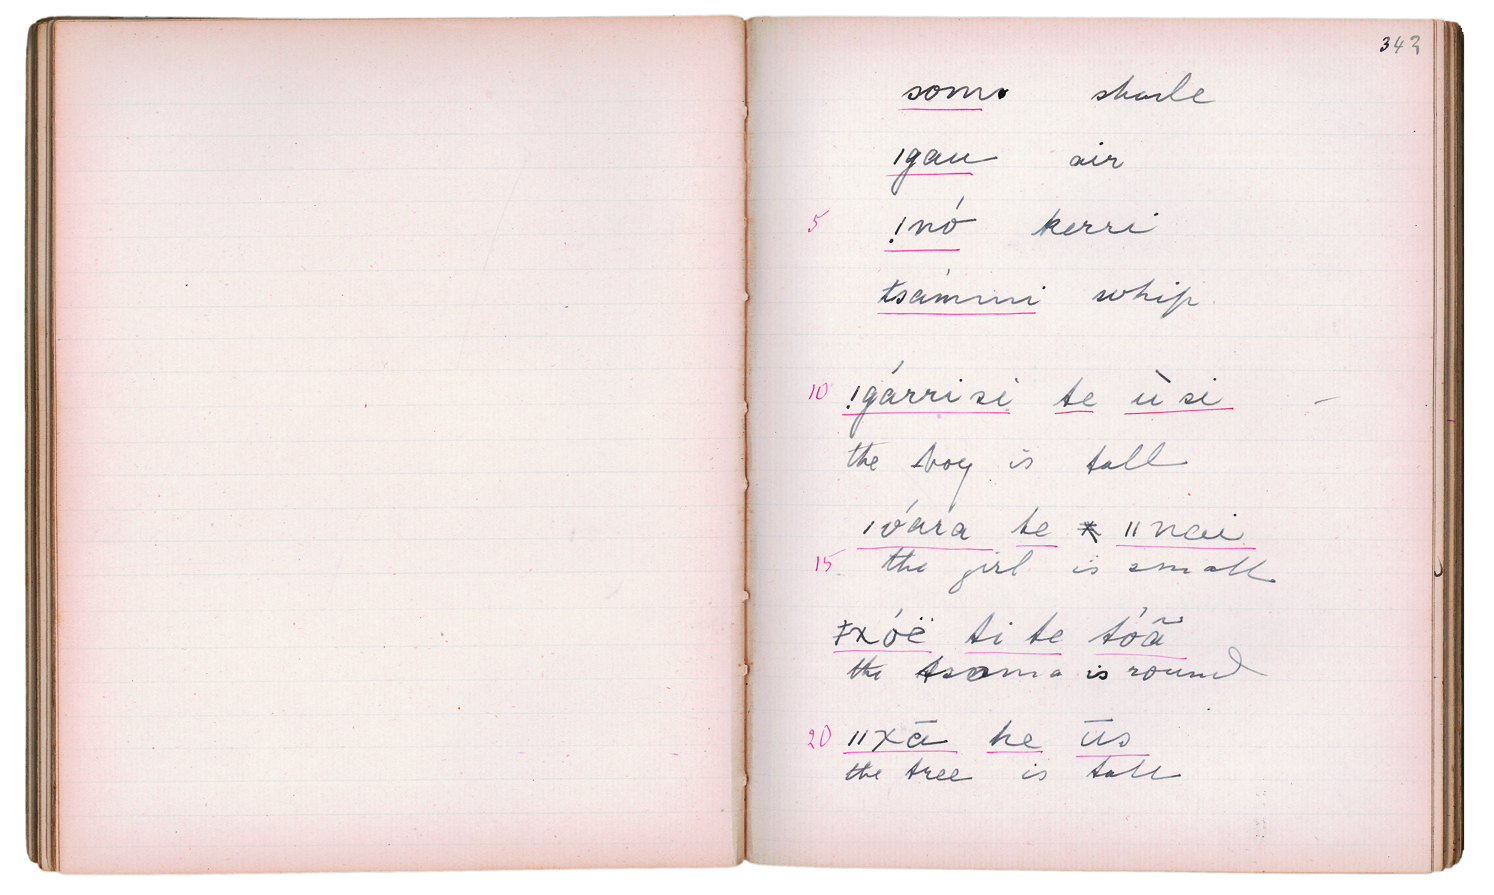 343
som. shade
ǀgau air
5 !nó kerri
tsámmi whip
10 !gárri si te ù si –
the boy is tall
ǀóara te ǁnai
15 the girl is small
ǂxóë ti te tóã
the tsama is round
20 ǁxā he ūs
the tree is tall